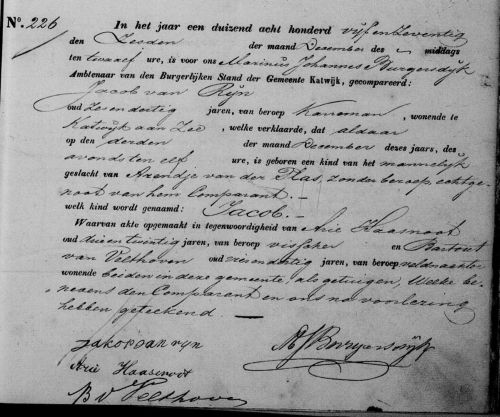 No. 226
In het jaar een duizend acht honderd vijf en zeventig
den Zesden der maand December des middags
ten twaalf ure, is voor ons Marinus Johannes Burgersdijk
Ambtenaar van den Burgerlijken Stand der Gemeente Katwijk, gecompareerd:
Jacob van Rijn
oud Zes en dertig jaren, van beroep Karreman, wonende te
Katwijk aan Zee, welke verklaarde, dat aldaar
op den derden der maand December dezes jaars, des
avonds ten elf ure, is geboren een kind van het mannelijk
geslacht van Arendje van der Plas, zonder beroep, echtge-
noot van hem Comparant.-
welk kind wordt genaamd: Jacob.-
Waarvan akte opgemaakt in tegenwoordigheid van Arie Haasnoot
oud drie en twintig jaren, van beroep visscher en Bartout
van Velthoven oud jaren, van beroep veldwachter
wonende beiden in deze gemeente, als getuigen, welke be-
neevens den Comparant en ons na voorlezing
hebben geteekend
Jakob van rijn
MJBurgersdijk
Arie Haasnoot
B v Velthoven